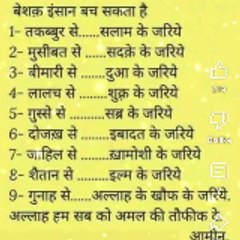 बेशक़ इंसान बच सकता है
1- तकब्बुर से......सलाम के जरिये
2- मुसीबत से......सदक़े के जरिये
3- बीमारी से .......दुआ के जरिये
4- लालच से .........शुक्र के जरिये
5- ग़ुस्से से .........सब्र के जरिये
6- दोजख़ से .......इबादत के जरिये
7- जाहिल से .......ख़ामोशी के जरिये
8- शैतान से ........इल्म के जरिये
9- गुनाह से......अल्लाह के खौफ के जरिये.
अल्लाह हम सब को अमल की तौफीक दे
आमीन